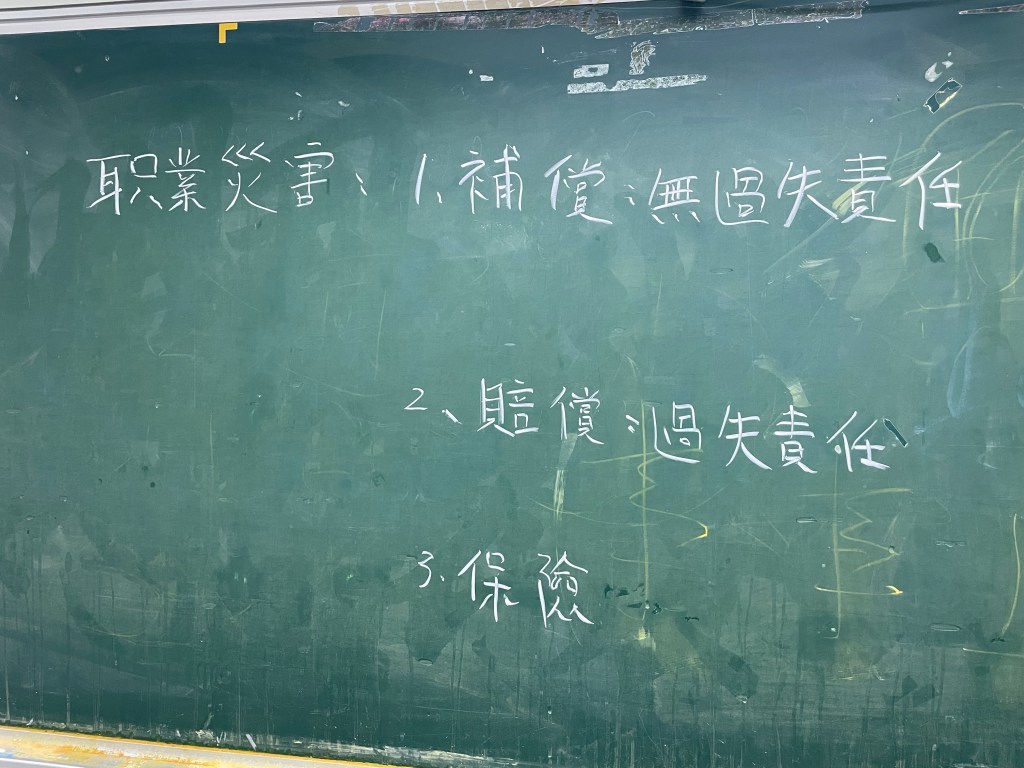 职業災害：1.補償：無過失責任
2、賠償：過失責任
3.保險